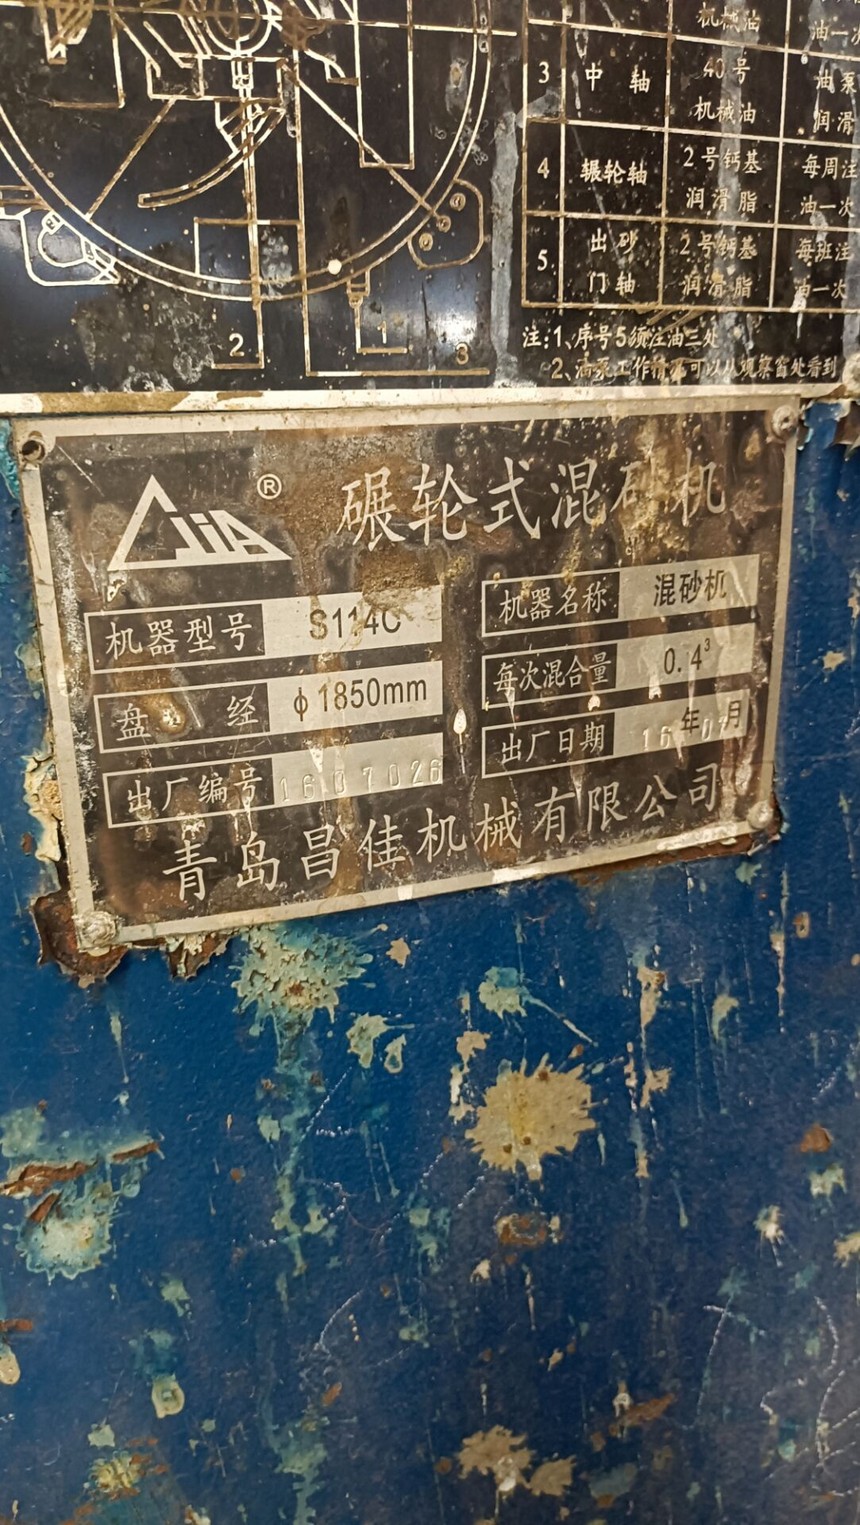 机械油 油一次
3 中轴 40号机械油 油泵润滑
4 辗轮轴 2号钙基润滑脂 每周注油一次
5 出砂门轴 2号钙基润滑脂 每班注油一次
注:1、序号5须注油三处
2、油泵工作情况可以从观察窗处看到
2 1 3
® 碾轮式混砂机
机器型号 S114C 机器名称 混砂机
盘经 φ1850mm 每次混合量 0.4³
出厂编号 1607026 出厂日期 16年07月
青岛昌佳机械有限公司